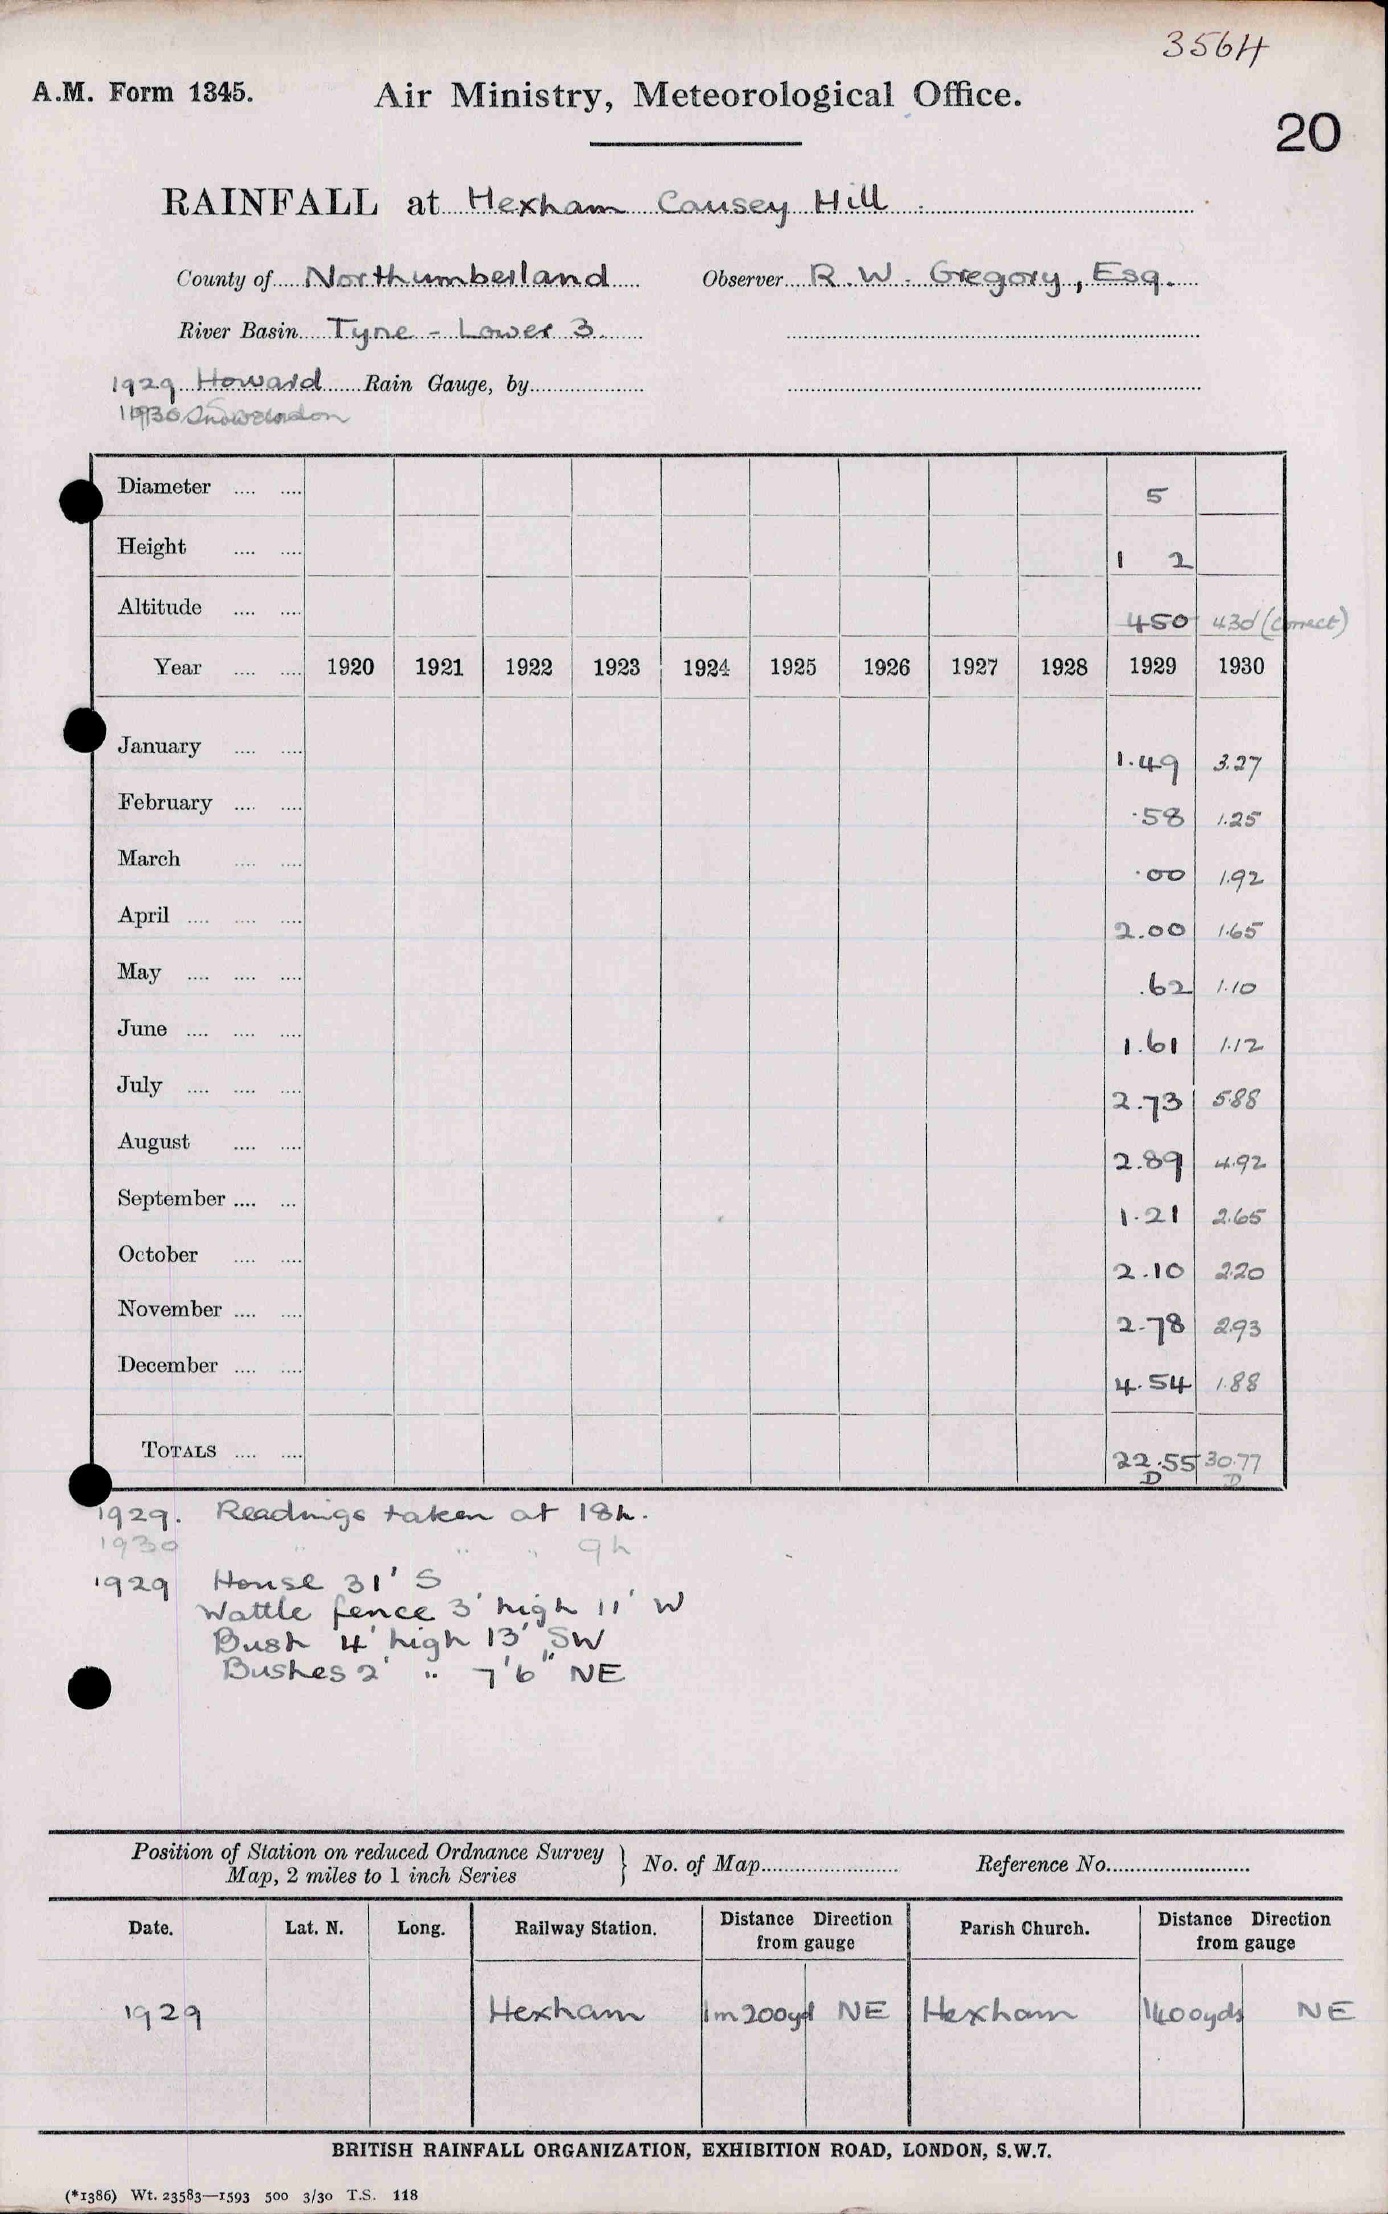 3564
A.M. Form 1345.
Air Ministry, Meteorological Office.
20
RAINFALL at Hexham Causey Hill
County of Northumberland Observer R.W. Gregory, Esq.
River Basin Tyne - Lower 3
1929 Howard Rain Gauge, by
1930 Snowdon
Diameter .... .... 5
Height .... .... 1 2
Altitude .... .... 450 430 (correct)
Year .... .... 1920 1921 1922 1923 1924 1925 1926 1927 1928 1929 1930
January .... .... 1.49 3.27
February .... .... .58 1.25
March .... .... .00 1.92
April .... .... .... 2.00 1.65
May .... .... .... .62 1.10
June .... .... .... 1.61 1.12
July .... .... .... 2.73 5.88
August .... .... 2.89 4.92
September .... ... 1.21 2.65
October .... .... 2.10 2.20
November .... .... 2.78 2.93
December .... .... 4.54 1.88
TOTALS .... .... 22.55 30.77
D D
1929. Readings taken at 18h.
1930 " " " 9h
1929 House 31' S
Wattle fence 3' high 11' W
Bush 4' high 13' SW
Bushes 2' " 7'6" NE
Position of Station on reduced Ordnance Survey
Map, 2 miles to 1 inch Series } No. of Map Reference No.
Date. Lat. N. Long. Railway Station. Distance Direction from gauge Parish Church. Distance Direction from gauge
1929 Hexham 1m200yd NE Hexham 1400yds NE
BRITISH RAINFALL ORGANIZATION, EXHIBITION ROAD, LONDON, S.W.7.
(*1386) Wt. 23583—1593 500 3/30 T.S. 118